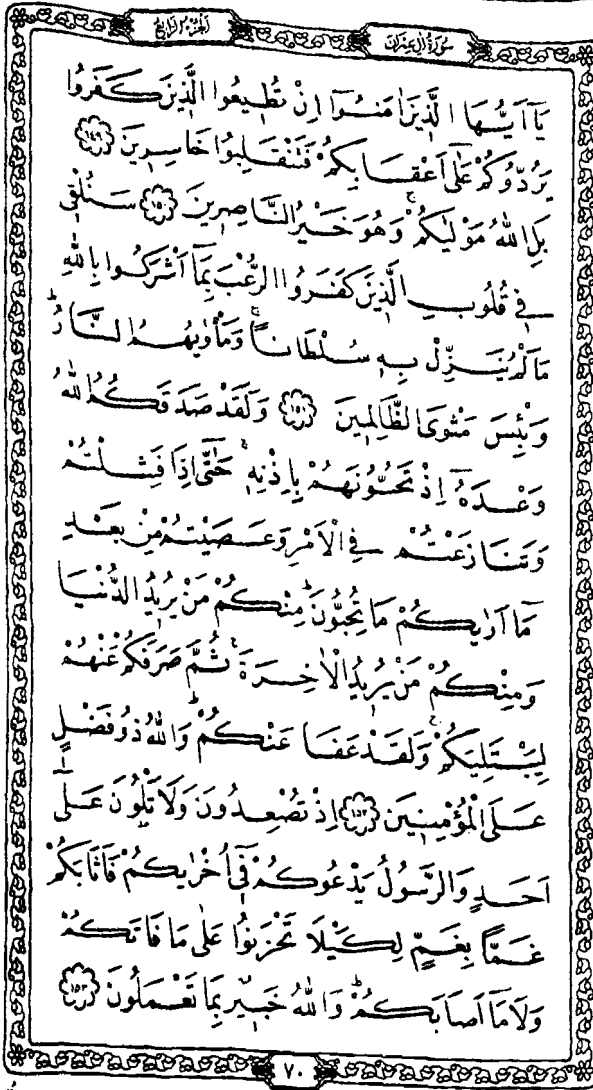 الجزء الرابع
سورة آل عمران
يَآ اَيُّهَا الَّذٖينَ اٰمَنُٓوا اِنْ تُطٖيعُوا الَّذٖينَ كَفَرُوا
يَرُدُّوكُمْ عَلٰٓى اَعْقَابِكُمْ فَتَنْقَلِبُوا خَاسِرٖينَ ﴿١٤٩﴾
بَلِ اللّٰهُ مَوْلٰيكُمْۚ وَهُوَ خَيْرُ النَّاصِرٖينَ ﴿١٥٠﴾ سَنُلْقٖى
فٖى قُلُوبِ الَّذٖينَ كَفَرُوا الرُّعْبَ بِمَٓا اَشْرَكُوا بِاللّٰهِ
مَا لَمْ يُنَزِّلْ بِهٖ سُلْطَانًاۚ وَمَأْوٰيهُمُ النَّارُؕ
وَبِئْسَ مَثْوَى الظَّالِمٖينَ ﴿١٥١﴾ وَلَقَدْ صَدَقَكُمُ اللّٰهُ
وَعْدَهُٓ اِذْ تَحُسُّونَهُمْ بِاِذْنِهٖۚ حَتّٰٓى اِذَا فَشِلْتُمْ
وَتَنَازَعْتُمْ فِى الْاَمْرِ وَعَصَيْتُمْ مِنْ بَعْدِ
مَٓا اَرٰيكُمْ مَا تُحِبُّونَؕ مِنْكُمْ مَنْ يُرٖيدُ الدُّنْيَا
وَمِنْكُمْ مَنْ يُرٖيدُ الْاٰخِرَةَۚ ثُمَّ صَرَفَكُمْ عَنْهُمْ
لِيَبْتَلِيَكُمْۚ وَلَقَدْ عَفَا عَنْكُمْؕ وَاللّٰهُ ذُو فَضْلٍ
عَلَى الْمُؤْمِنٖينَ ﴿١٥٢﴾ اِذْ تُصْعِدُونَ وَلَا تَلْوُ۫نَ عَلٰٓى
اَحَدٍ وَالرَّسُولُ يَدْعُوكُمْ فٖٓى اُخْرٰيكُمْ فَاَثَابَكُمْ
غَمًّا بِغَمٍّ لِكَيْلَا تَحْزَنُوا عَلٰى مَا فَاتَكُمْ
وَلَا مَٓا اَصَابَكُمْؕ وَاللّٰهُ خَبٖيرٌ بِمَا تَعْمَلُونَ ﴿١٥٣﴾
٧٠